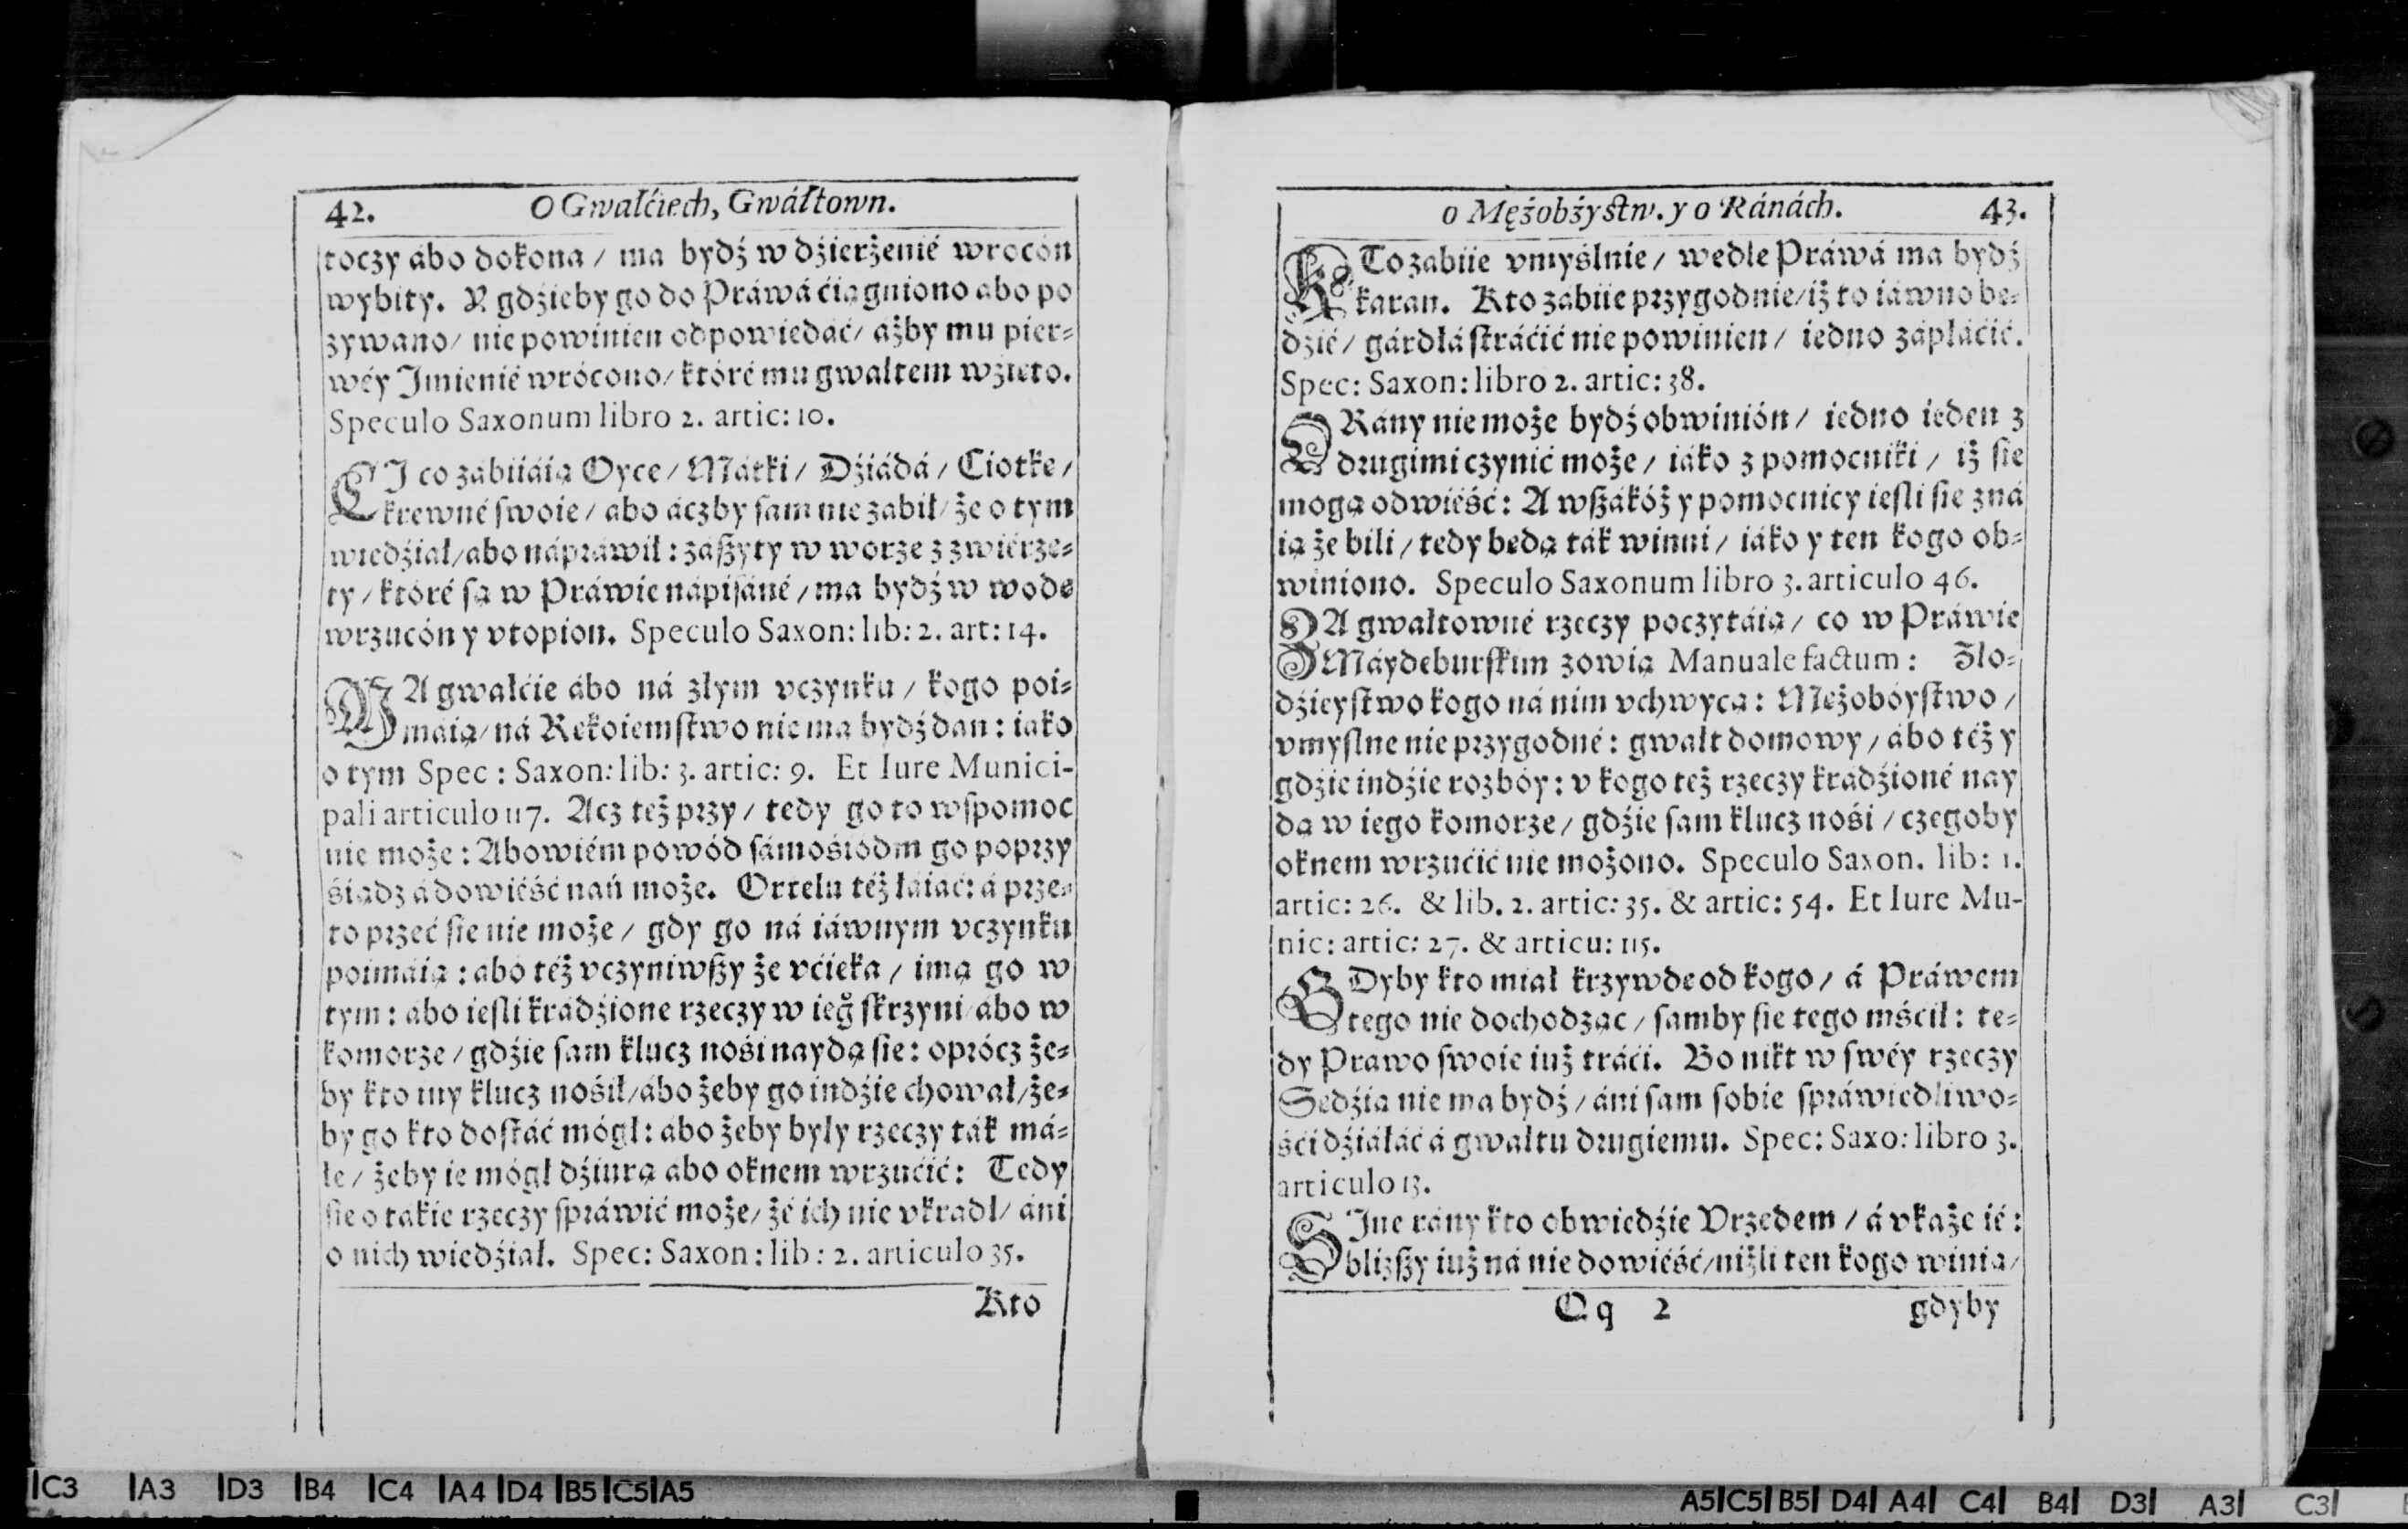 42. O Gwałćiech, Gwáłtown.
toczy ábo dokona / ma bydź w dźierżenié wrocón
wybity. Y gdźieby go do Práwá ćiągniono abo po
zywano / nie powinien odpowiedáć / áżby mu pier⸗
wéy Jmienié wrócono / któré mu gwałtem wźięto.
Speculo Saxonum libro 2. artic: 10.
CJ co zábiiáią Oyce / Mátki / Dźiádá / Ciotke /
krewné swoie / abo áczby sam nie zabił / że o tym
wiedźiał / abo nápráwił : zászyty w worze z zwiérze⸗
ty / któré są w Práwie nápisáné / ma bydź w wode
wrzucón y vtopion. Speculo Saxon: lib: 2. art: 14.
NA gwałćie ábo ná złym vczynku / kogo poi⸗
maią / ná Rekoiemstwo nie ma bydź dan : iako
o tym Spec : Saxon: lib: 3. artic: 9. Et Iure Munici-
pali articulo 117. Acz też przy / tedy go to wspomoc
nie może : Abowiém powód sámośiodm go poprzy
śiądz á dowiéść nań może. Ortelu téż łaiać: á prze⸗
to przeć sie nie może / gdy go ná iáwnym vczynku
poimáią : abo téż vczyniwszy że vćieka / imą go w
tym : abo iesli kradźione rzeczy w ieg̊ skrzyni / abo w
komorze / gdźie sam klucz nośi naydą sie : oprócz że⸗
by kto iny klucz nośił / ábo żeby go indźie chował / że⸗
by go kto dostáć mógł : abo żeby były rzeczy ták má⸗
łe / żeby ie mógł dźiurą abo oknem wrzućić : Tedy
sie o takie rzeczy spráwić może / żé ich nie vkradł / áni
o nich wiedźiał. Spec: Saxon : lib : 2. articulo 35.
Kto
o Mężobżystw. y o Ránách. 43.
KTo zabiie vmyślnie / wedle Práwá ma bydź
karan. Kto zábiie przygodnie / iż to iáwno be⸗
dzié / gárdłá stráćić nie powinien / iedno zápłáćić.
Spec: Saxon: libro 2. artic: 38.
O Rány nie może bydź obwinión / iedno ieden z
drugimi czynić może / iáko z pomocniki / iż sie
mogą odwiéść : A wszákóż y pomocnicy iesli sie zná
ią że bili / tedy będą ták winni / iáko y ten kogo ob⸗
winiono. Speculo Saxonum libro 3. articulo 46.
ZA gwałtowné rzeczy poczytáią / co w Práwie
Máydeburskim zowią Manuale factum : Zło⸗
dźieystwo kogo ná nim vchwycą : Meżobóystwo /
vmyslne nie przygodné : gwałt domowy / ábo téż y
gdźie indźie rozbóy : v kogo też rzeczy kradźioné nay
dą w iego komorze / gdźie sam klucz nośi / czegoby
oknem wrzućić nie możono. Speculo Saxon. lib: 1.
artic: 26. & lib. 2. artic: 35. & artic: 54. Et Iure Mu-
nic: artic: 27. & articu: 115.
GDyby kto miał krzywde od kogo / á Práwem
tego nie dochodząc / samby sie tego mśćił : te⸗
dy Prawo swoie iuż tráći. Bo nikt w swéy rzeczy
Sedźią nie ma bydź / áni sam sobie spráwiedliwo⸗
śći dźiáłáć á gwałtu drugiemu. Spec: Saxo: libro 3.
articulo 13.
SJne rány kto obwiedźie Vrzedem / á vkaże ié :
bliższy iuż ná nie dowiéść / niżli ten kogo winią /
Qq 2 gdyby
C3 A3 D3 B4 C4 A4 D4 B5 C5 A5
A5 C5 B5 D4 A4 C4 B4 D3 A3 C3